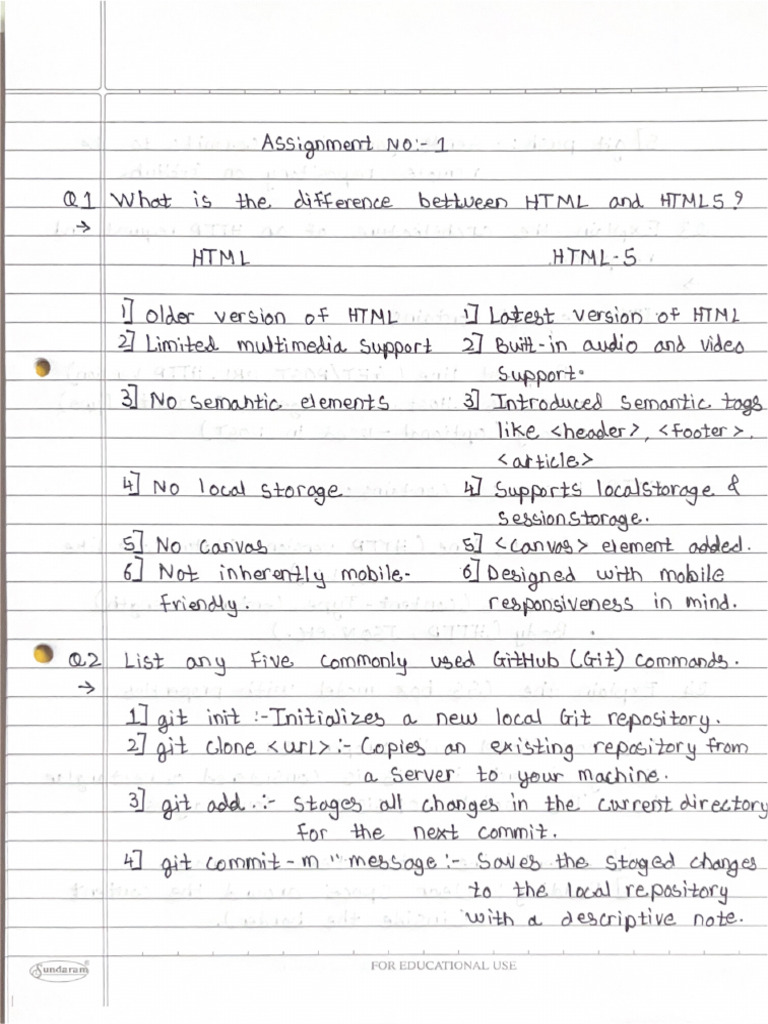 Assignment No:- 1
Q1 What is the difference between HTML and HTML5?
→
HTML HTML-5
1] Older version of HTML 1] Latest version of HTML
2] Limited multimedia support 2] Built-in audio and video
support.
3] No semantic elements 3] Introduced semantic tags
like <header>, <footer>,
<article>
4] No local storage 4] Supports localstorage &
sessionstorage.
5] No canvas 5] <canvas> element added.
6] Not inherently mobile- 6] Designed with mobile
friendly. responsiveness in mind.
Q2 List any Five commonly used GitHub (Git) commands.
→
1] git init :- Initializes a new local Git repository.
2] git clone <url> :- Copies an existing repository from
a server to your machine.
3] git add . :- Stages all changes in the current directory
for the next commit.
4] git commit -m "message :- Saves the staged changes
to the local repository
with a descriptive note.
Sundaram®
FOR EDUCATIONAL USE